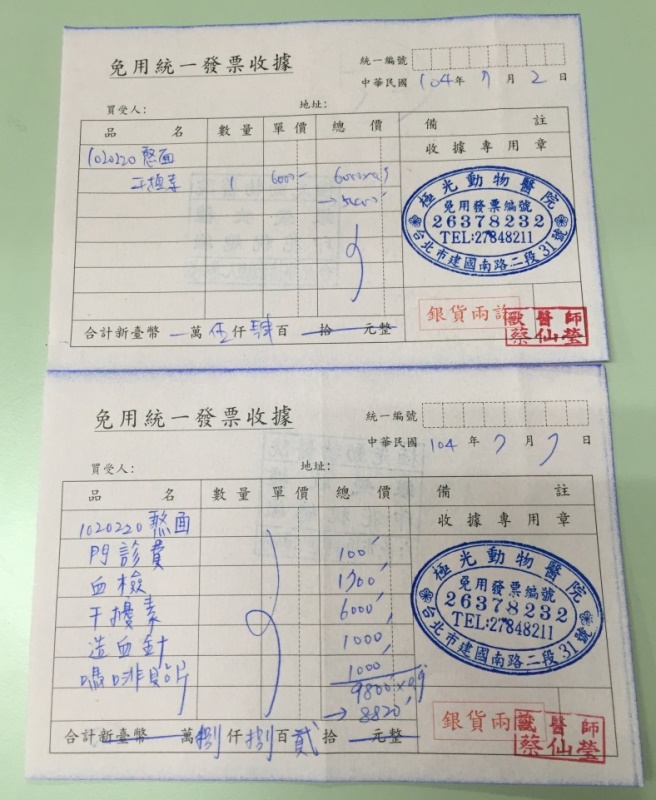 免用統一發票收據
統一編號
中華民國 104年 7月 2日
買受人: 地址:
品名 數量 單價 總價 備註
1020220 憨面 收據專用章
干擾素 1 6000 6000×0.9
→5400
極光動物醫院
免用發票編號
26378232
TEL:27848211
台北市建國南路二段31號
銀貨兩訖
獸醫師
蔡仙瑩
合計新臺幣 萬伍仟肆百 拾 元整
免用統一發票收據
統一編號
中華民國 104年 7月 7日
買受人: 地址:
品名 數量 單價 總價 備註
1020220 憨面 收據專用章
門診費 100
血檢 1300
干擾素 6000
造血針 1000
1000
9800×0.9
→8820
極光動物醫院
免用發票編號
26378232
TEL:27848211
台北市建國南路二段31號
銀貨兩訖
獸醫師
蔡仙瑩
合計新臺幣 萬捌仟捌百貳拾 元整